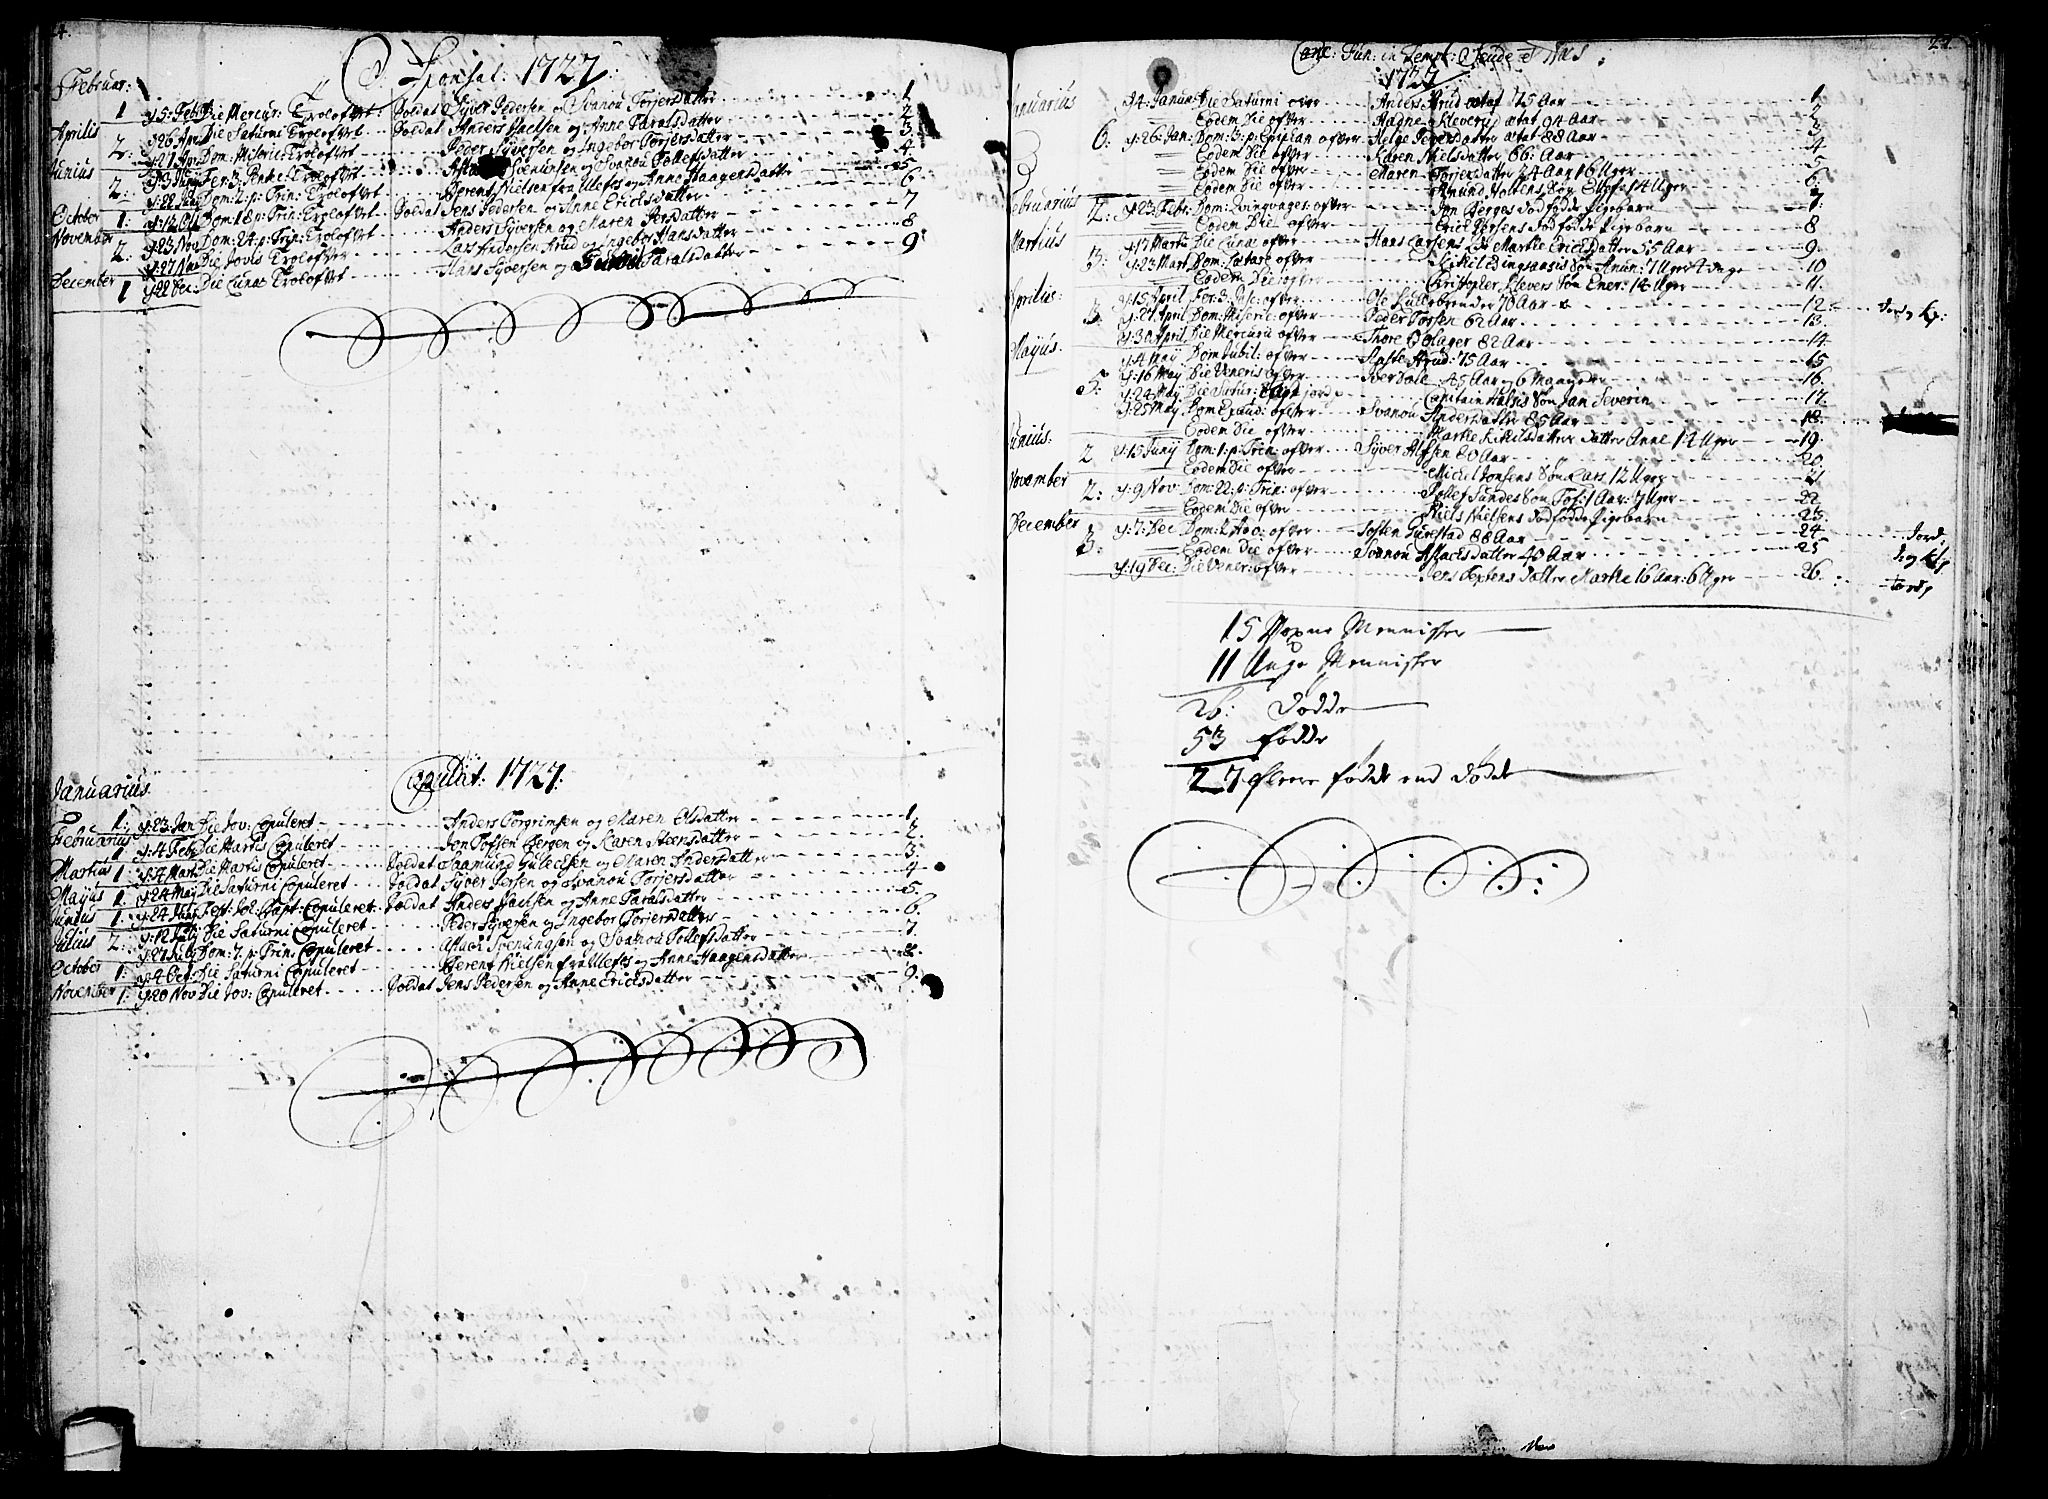 4.
Sponsal: 1727.
Februar:
1 y 5: Feb: Die Mercur: Trolofvet: Soldat Syver Pedersen og Svanou Torjersdatter 1
Aprilis y 26 Apr Die Saturni Trolofvet Soldat Anders Paelsen og Anne Taralsdatter 2
2: y 27 Apr Dom: Miseric: Trolofvet Peder Syversen og Ingebor Torjersdatter 3
Junius y 3 Junij Fer: 3: Trolofvet Svenungsen og Svanou Tollefsdatter 4
2: y 22 Dom: 2: p: Trin: Trolofvet Berent Nielsen fra Ulefos og Anne Haagensdatter 5
October 1: y: 12 Oct Dom: 18 p: Trin: Trolofvet Soldat Jens Pedersen og Anne Ericksdatter 6
November y 23 Nov Dom: 24: p: Trin: Trolofvet Anders Syversen og Maren Persdatter 7
2: y: 27 Nov Die Jovis Trolofvet Lars Andersen Arud og Ingebor Hansdatter 8
December 1 y 22 Dec: Die Lunæ Trolofvet Hans Syversen og Taralsdatter 9
Copulat: 1727.
Januarius.
1: y: 23: Jan Die Jov: Copuleret Anders Torgrimsen og Maren Olsdatter 1.
Februarius 1 y: 4 Feb Die Martis Copuleret Jon Tofsen Bergen og Karen Steensdatter 2.
Martius 1: y: 4 Mart Die Martis Copuleret Soldat Aamund Gulecksen og Maren Andersdatter 3.
Mayus 1. y 24 May Die Saturni Copuleret Soldat Syver Persen og Svanou Torjersdatter 4
Junius 1. y: 24 Junij Fest: Joh: Bapt: Copuleret Soldat Anders Paelsen og Anne Taralsdatter 5.
Julius y: 12 July Die Saturni Copuleret Peder Syversen og Ingebor Torjersdatter 6.
2: y 27 July Dom: 7. p: Trin: Copuleret Aslack Svenungsen og Svanou Tollefsdatter 7.
October 1: y 4 Oct: Die Saturni Copuleret Berent Nielsen fra Ulefos og Anne Haagensdatter 8.
November 1: y 20 Nov Die Jov: Copuleret Soldat Jens Pedersen og Anne Ericksdatter 9.
Conc: Fun: in Templ:
1727
Januarius y 4. Januar Die Saturni over Anders Arud ætat 75 Aar 1
Eodem Die ofver Madne Klevery ætat 94 Aar 2
6: y: 26: Jan: Dom: 3: p: Epiphan ofver Helge Pedersdatter ætat 88 Aar 3
Eodem Die ofver Karen Nielsdatter 66: Aar 4
Eodem Die ofver Maren Torjersdatter 24 Aar 16 Uger 5
Eodem Die ofver Amund Holtens Søn Ellef: 14 Uger 6
Februarius 2: y: 23: Febr: Dom: Qvinqvages: ofver Jon Berges Dødfødde Pigebarn 7
Eodem Die ofver Erick Persens Dødfødde Pigebarn 8
Martius y 17 Martij Die Lunæ ofver Hans Larsens Marthe Ericksdatter 55 Aar 9
3: y: 23 Mart Dom: Lætare ofver Søn Amun: 7 Uger 10
Eodem Die ofver Christopher Klevers Søn Ener: 14 Uger 11
Aprilis: y: 15 April Fer: 3: Pasc: ofver Ole Kullebrender 70 Aar 12 Jord og
3 y: 27 April Dom: Miseric: ofver Peder Tofsen 62 Aar 13
y: 30 April Die Mercurij ofver Thore Oolager 82 Aar 14
Mayus: y: 4 May Dom Jubil: ofver Aaste Arud: 75 Aar 15
y: 16 May Die Veneris ofver Iver Dale 45 Aar og 6 Maaneder 16
5: y: 24 May Die Satur: Capitain Søn Jan Severin 17
y: 25 May Dom Exaud: ofver Svanou Andersdatter 85 Aar 18
Eodem Die ofver Marthe Kiekilsdatters Datter Anne 14 Uger 19
Junius. 2 y: 15 Junij Dom: 1: p: Trin: ofver Syver Alfsen 80 Aar 20
Eodem Die ofver Michel Jonsens Søn Lars 12 Uger 21
November 2: y: 9 Nov: Dom: 22: p: Trin: ofver Tollef Sundes Søn Tof: 1 Aar: 7 Uger 22
Eodem Die ofver Niels Nielsens Dødfødde Pigebarn 23
December y: 7: Dec Dom: 2 Adv: ofver Soften Gurestad 88 Aar 24 Jord:
3: Eodem Die ofver Svanou Aslacksdatter 40 Aar 25 J: og
y: 19 Dec: Die Vener: ofver Datter Marthe 16 Aar: 6 Uger 26: Jord
15 Voxne Mennisker
11 Unge Mennisker
26: Døde
53 fødde
27 fleere fødde end døde